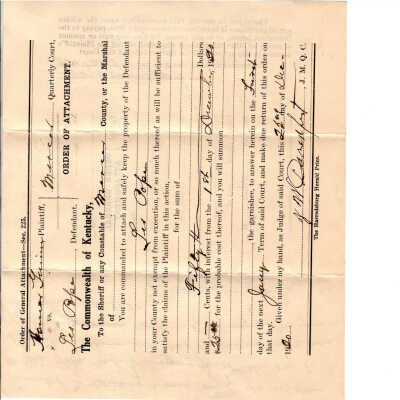 Order of General Attachment—Sec. 225.
Plaintiff, Mercer Quarterly Court,
vs.
ORDER OF ATTACHMENT.
Les Pope Defendant,
The Commonwealth of Kentucky,
To the Sheriff or any Constable of Mercer County, or the Marshal
of
You are commanded to attach and safely keep the property of the Defendant
Les Pope
in your County not exempt from execution, or so much thereof as will be sufficient to
satisfy the claims of the Plaintiff in this action,
for the sum of
Fifty Dollars
and Cents, with interest from the 1st day of December,
for the probable cost thereof, and you will summon
the garnishee, to answer herein on the First
day of the next Jany Term of said Court, and make due return of this order on
that day.
Given under my hand, as Judge of said Court, this 26th day of Dec—
J. M. Q. C.
The Harrodsburg Herald Print.